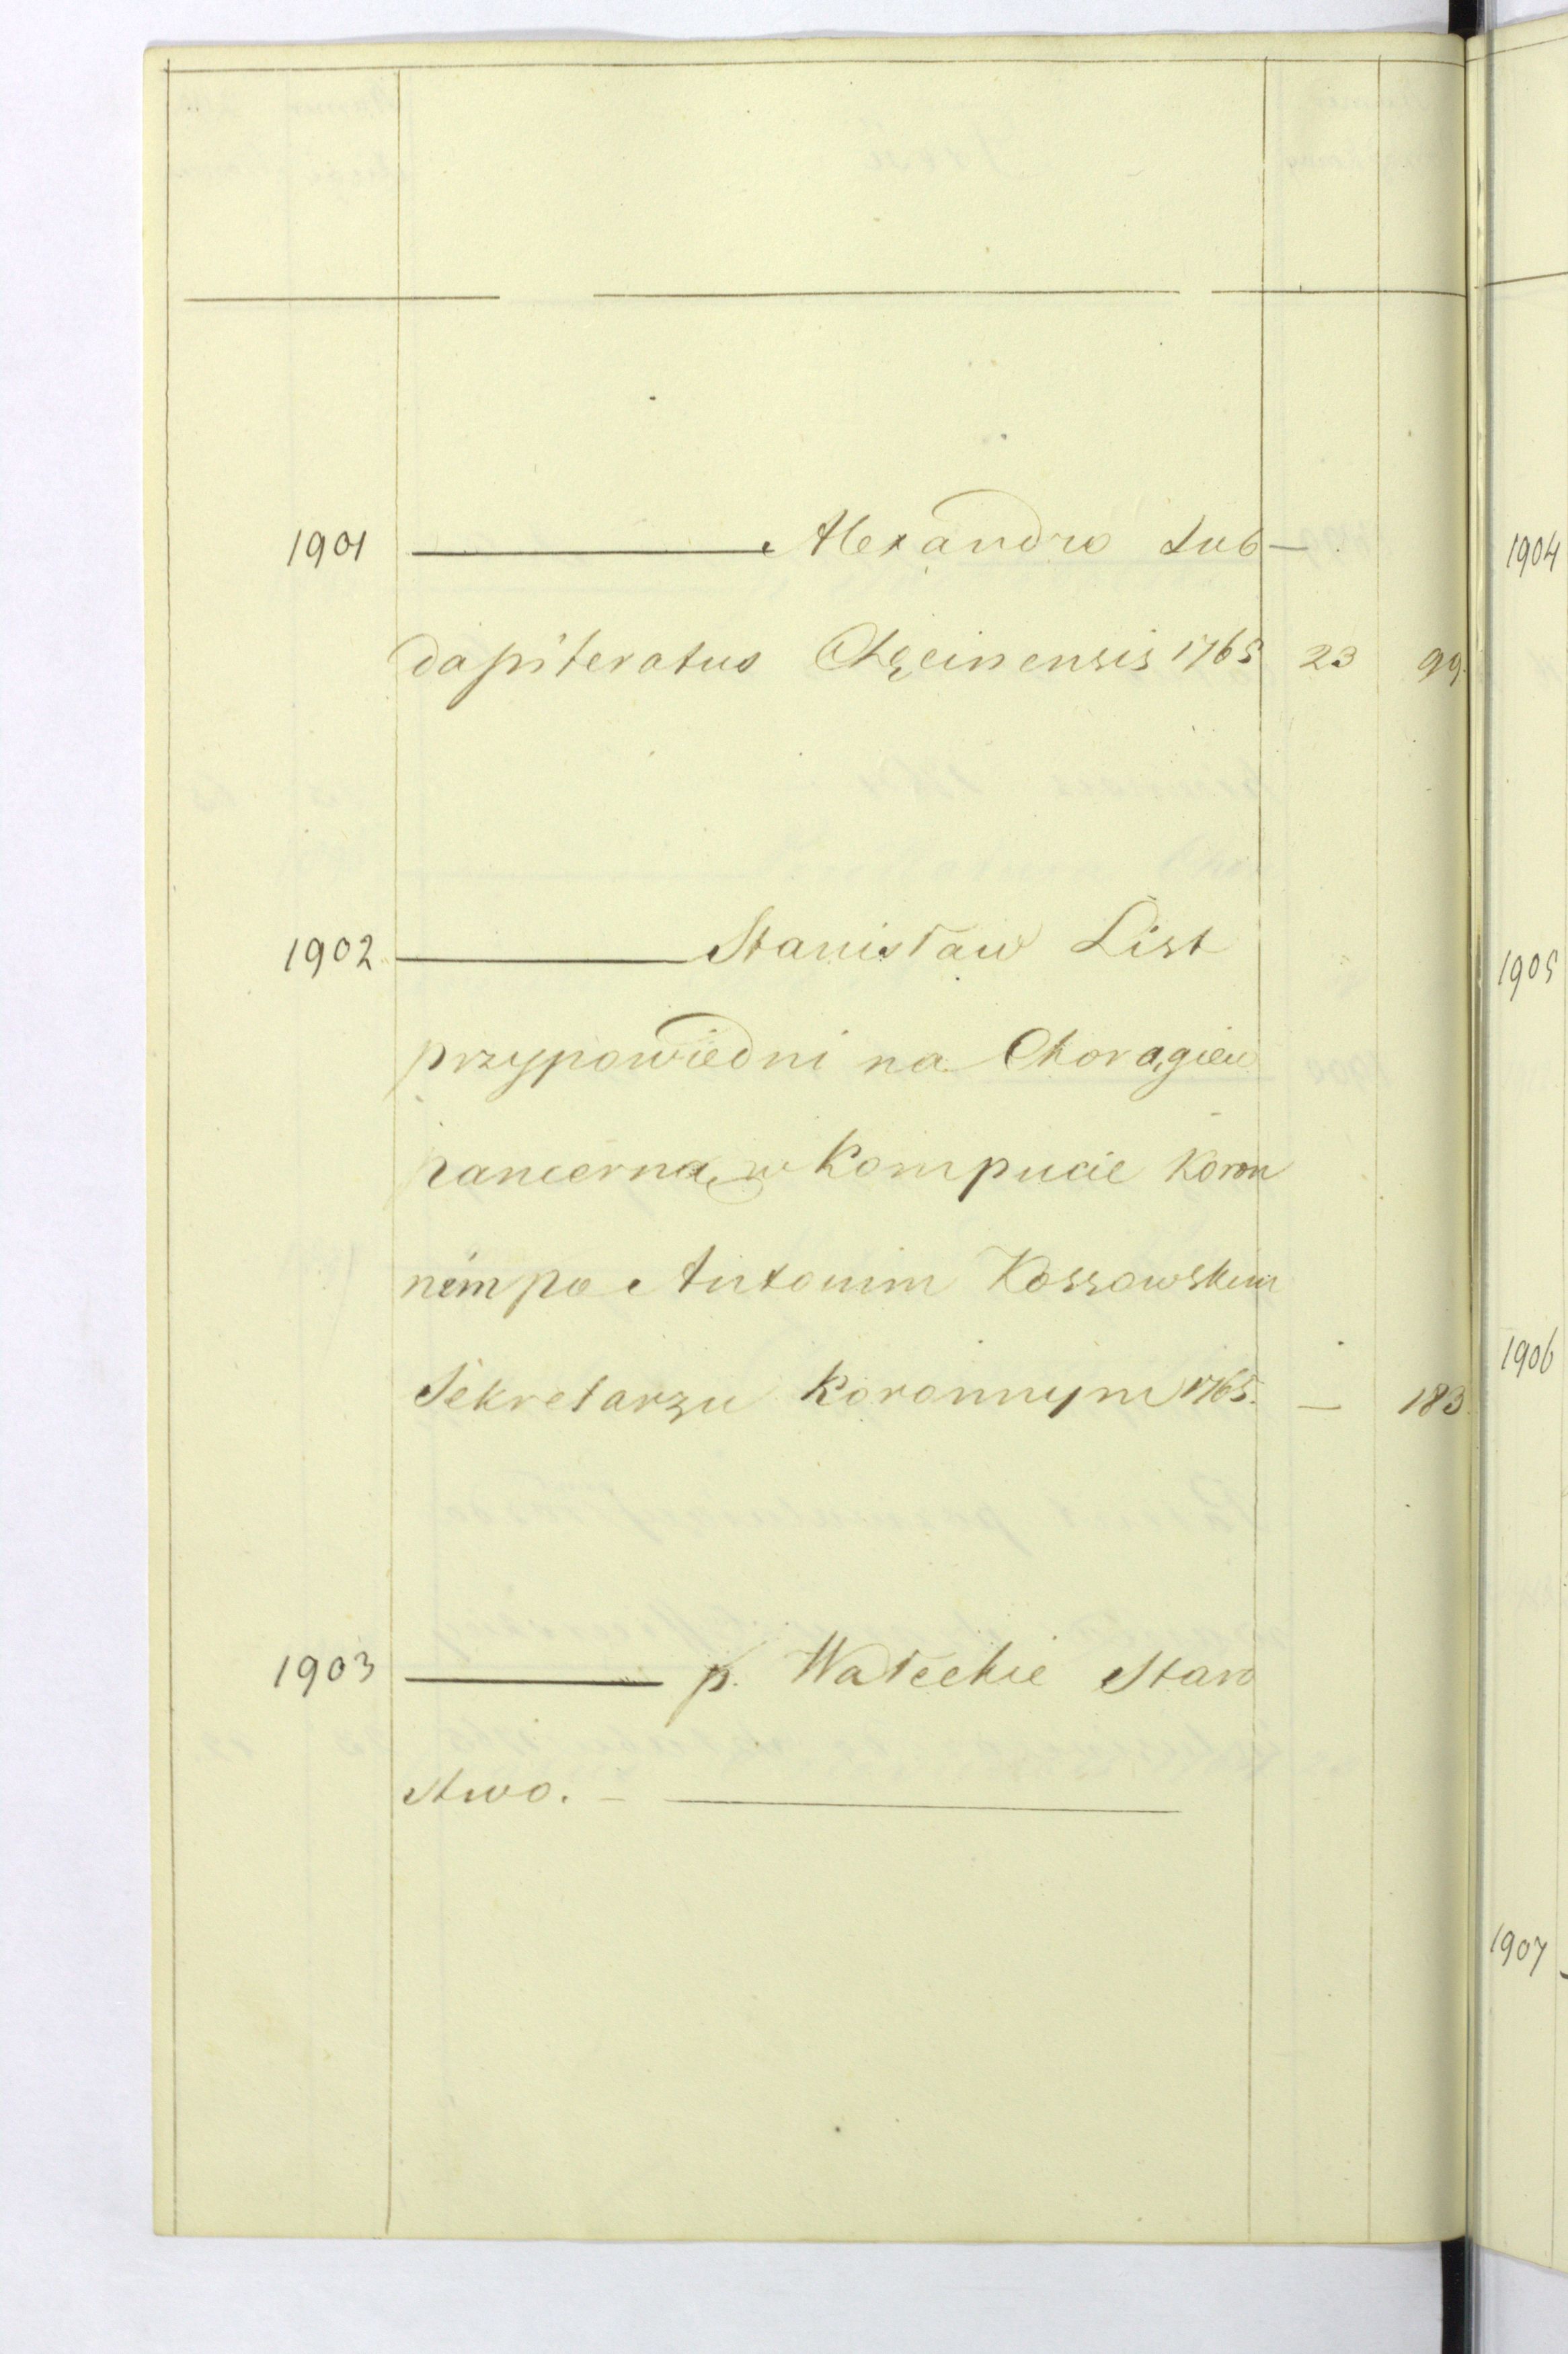 1901 ——— Alexandro Sub—
dapiferatus Chęcinensis 1765 23 99.
1902. ——— Stanisław List
przypowiedni na Chorągiew
pancerną w Kompucie Koron
ném po Antonim Kossowskim
Sekretarzu Koronnym 1765. — 183.
1903 ——— p. Wałeckie Staro
stwo. — ———
1904
1905
1906
1907